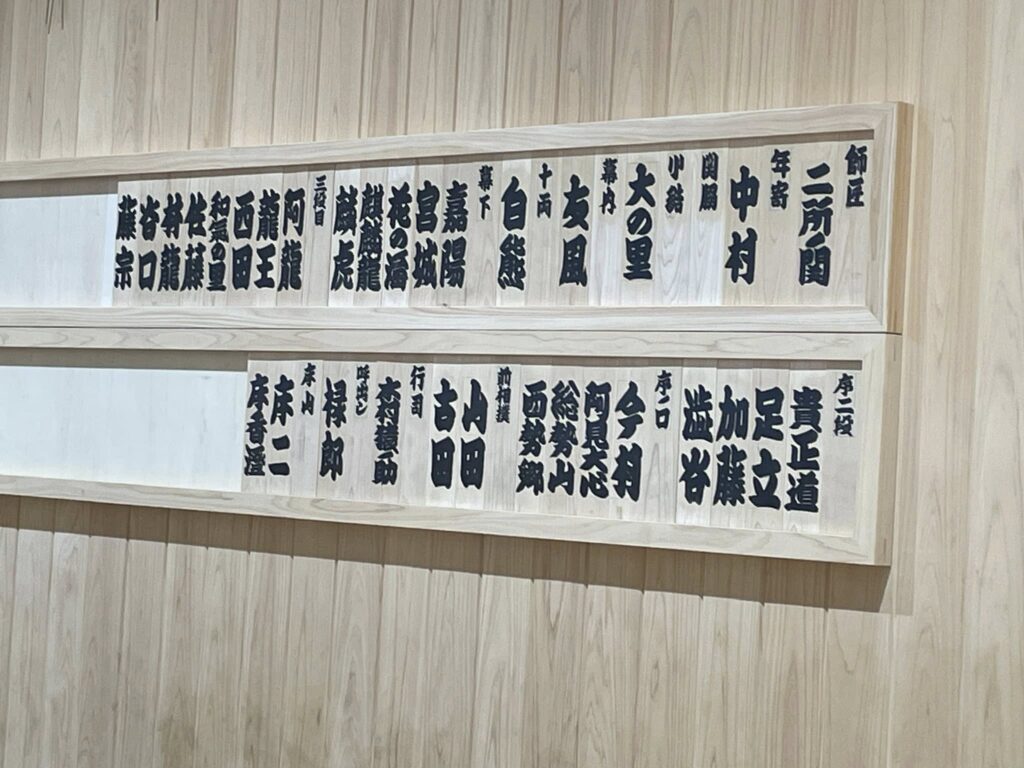 師匠
二所ノ関
年寄
中村
関脇
小結
大の里
幕内
友風
十両
白熊
幕下
嘉陽
宮城
花の海
麒麟龍
麟虎
三段目
阿龍
龍王
西田
和氣の里
佐藤
林龍
谷口
藤宗
序二段
貴正道
足立
加藤
澁谷
序ノ口
今村
阿見大心
総勢山
西勢郷
前相撲
山田
古田
行司
木村猿助
呼出シ
禄郎
床山
床二
床香澄